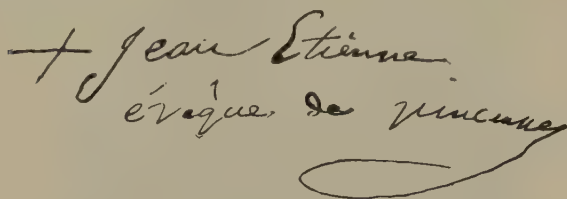 + Jean Etienne
évêque de vincennes